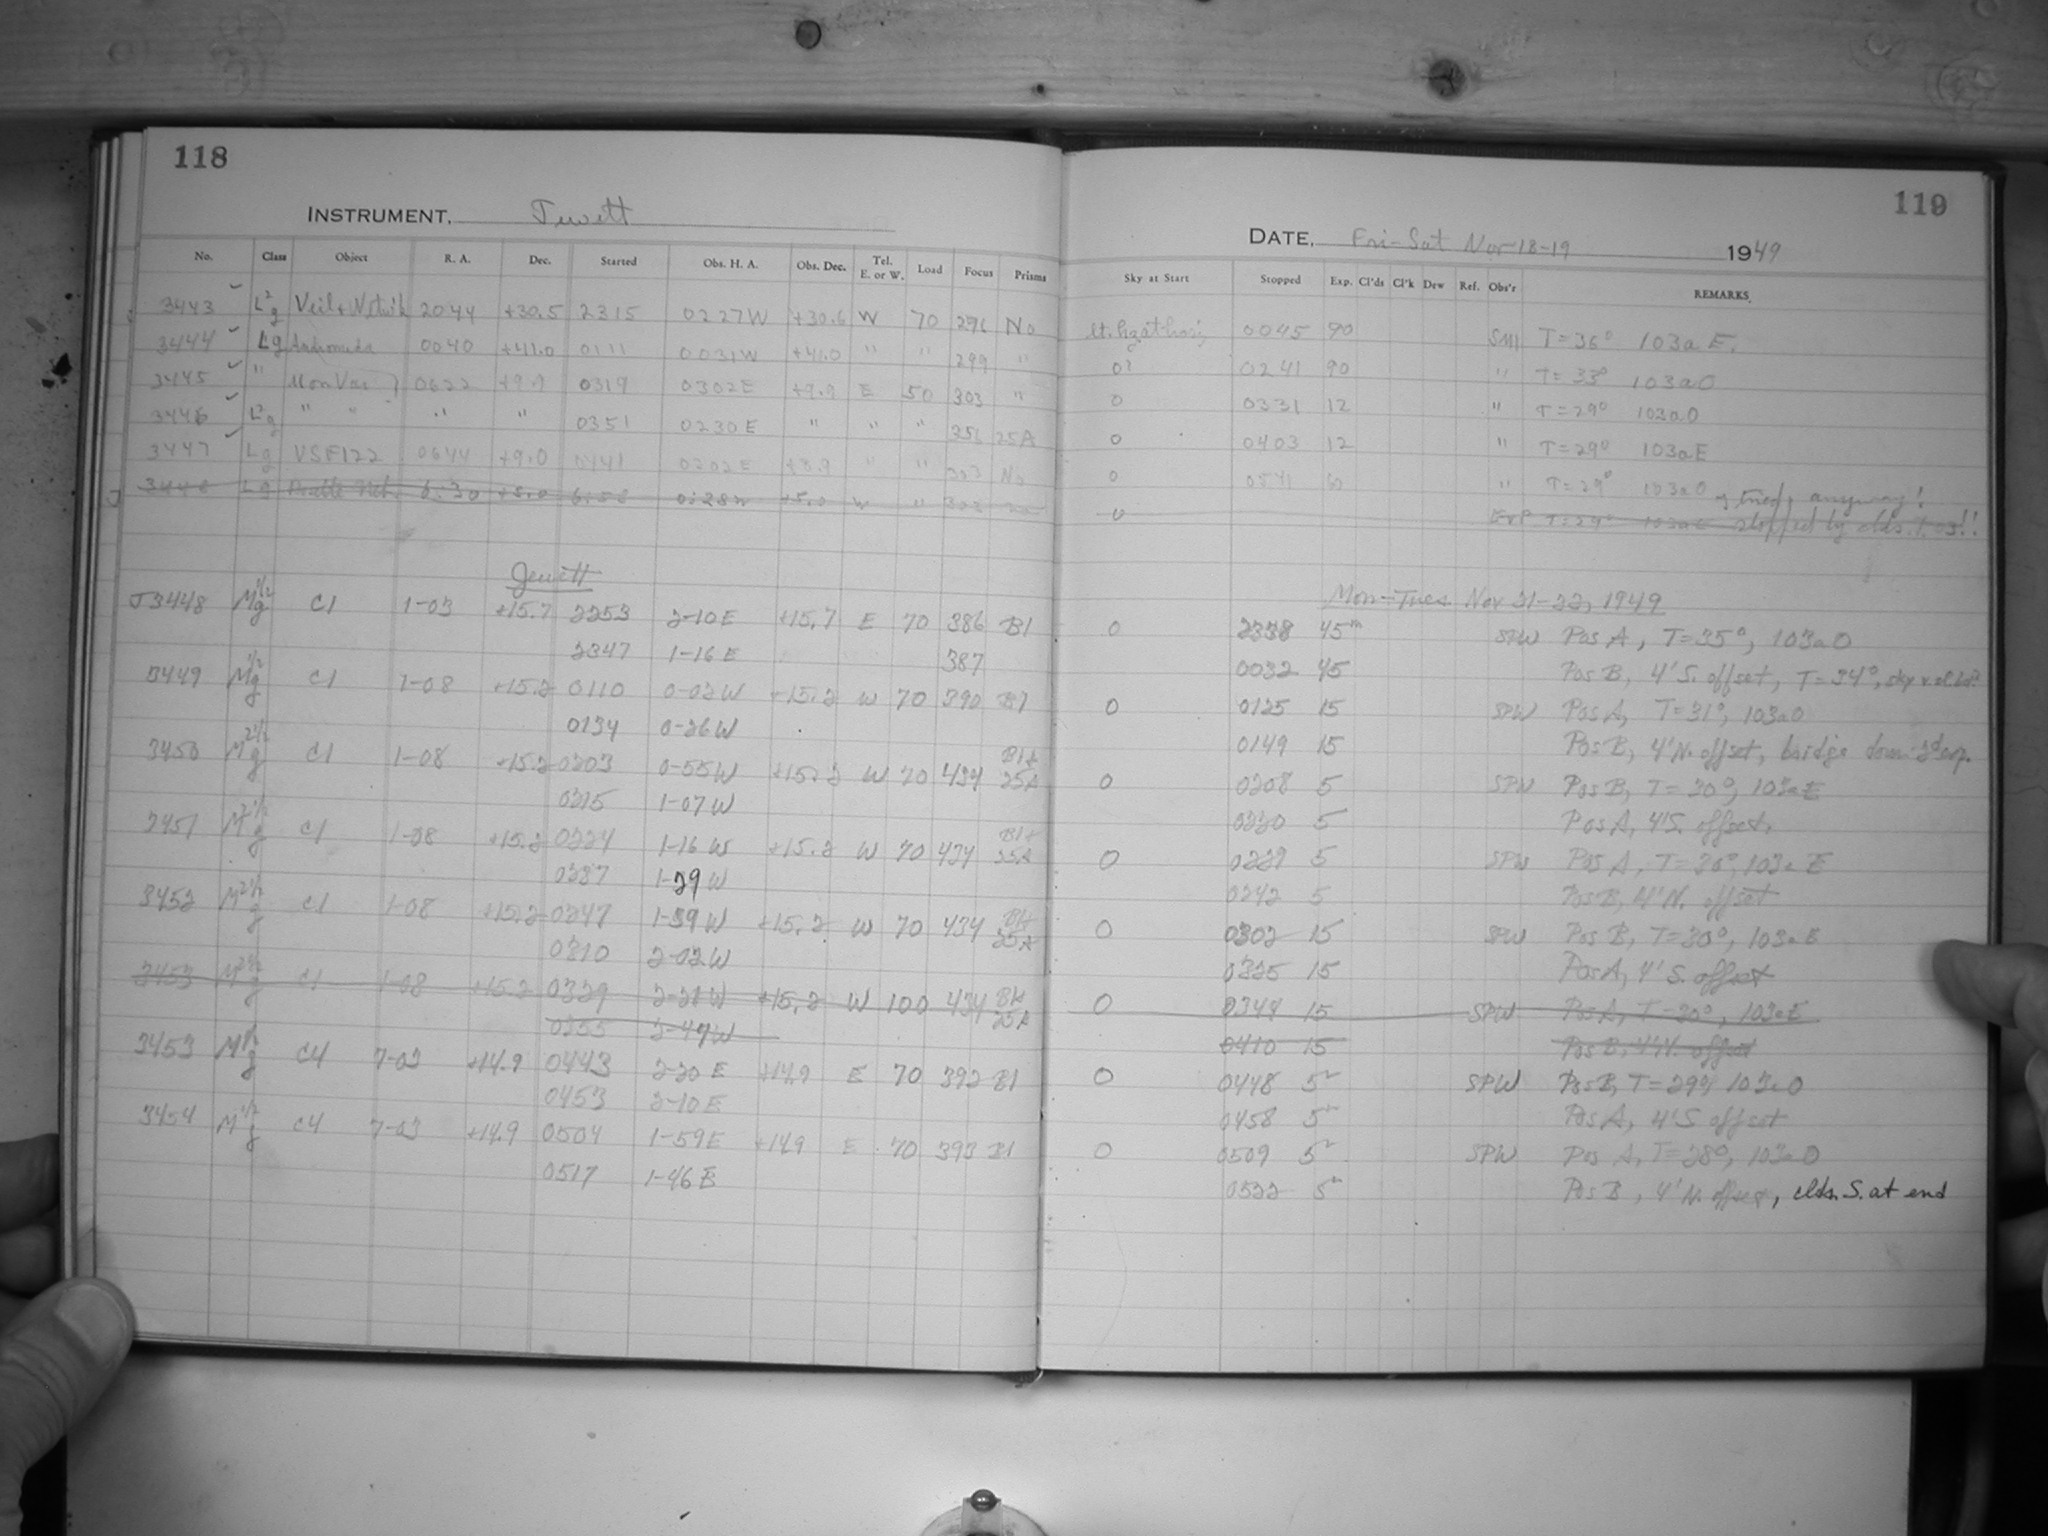 118
INSTRUMENT, Jewett
No. Class Object R. A. Dec. Started Obs. H. A. Obs. Dec. Tel. E. or W. Load Focus Prisms
3443 L2g Veil + 2044 +30.5 2315 0227W +30.6 W 70 296 No
3444 Lg Andromeda 0040 +41.0 0111 0031W +41.0 " " 299 "
3445 " Mon Var 0622 +9.9 0319 0302E +9.9 E 50 303 "
3446 L2g " " " " 0351 0230E " " " 351 25A
3447 Lg VSF122 0644 +9.0 0441 0202E +8.9 " " 303 No
3448 Lg 6:30 +5.0 6:58 0:28W +5.0 W " 303
Jewett
J3448 M1/2g C1 1-03 +15.7 2253 2-10E +15.7 E 70 386 B1
2347 1-16E 387
3449 M1/2g C1 1-08 +15.2 0110 0-02W +15.2 W 70 390 B1
0134 0-26W
3450 M21/2g C1 1-08 +15.2 0203 0-55W +15.2 W 70 434 B1+ 25A
0215 1-07W
3451 M21/2g C1 1-08 +15.2 0224 1-16W +15.2 W 70 434 B1+ 25A
0237 1-29W
3452 M21/2g C1 1-08 +15.2 0247 1-39W +15.2 W 70 434 B1+ 25A
0310 2-02W
3453 M21/2g C1 1-08 +15.2 0329 2-21W +15.2 W 100 434 B1+ 25A
0355 2-47W
3453 M1/2g C4 7-03 +14.9 0443 2-20E +14.9 E 70 392 B1
0453 2-10E
3454 M1/2g C4 7-03 +14.9 0504 1-59E +14.9 E 70 393 B1
0517 1-46E
119
DATE, Fri-Sat Nov 18-19 1949
Sky at Start Stopped Exp. Cl'ds Cl'k Dew Ref. Obs'r REMARKS
0045 90 T=36° 103a E.
0? 0241 90 " T=33° 103aO
0 0331 12 " T=29° 103aO
0 0403 12 " T=29° 103aE
0 0541 60 " T=29° 103aO
tried, anyway!
0 T=29° stopped by clds. 7.03!!
Mon-Tues Nov 21-22, 1949
0 2338 45m SPW Pos A, T=35°, 103aO
0032 45 Pos B, 4'S. offset, T=34°, sky
0 0125 15 SPW Pos A, T=31°, 103aO
0149 15 Pos B, 4'N. offset, bridge down 2d exp.
0 0208 5 SPW Pos B, T=30°, 103aE
0220 5 Pos A, 4'S. offset.
0 0229 5 SPW Pos A, T=30°, 103aE
0242 5 Pos B, 4'N. offset
0 0302 15 SPW Pos B, T=30°, 103aE
0325 15 Pos A, 4'S. offset
0 0344 15 SPW Pos A, T=30°, 103aE
0410 15 Pos B, 4'N. offset
0 0448 5m SPW Pos B, T=29°, 103aO
0458 5m Pos A, 4'S offset
0 0509 5m SPW Pos A, T=28°, 103aO
0522 5m Pos B, 4'N. offset, clds. S. at end